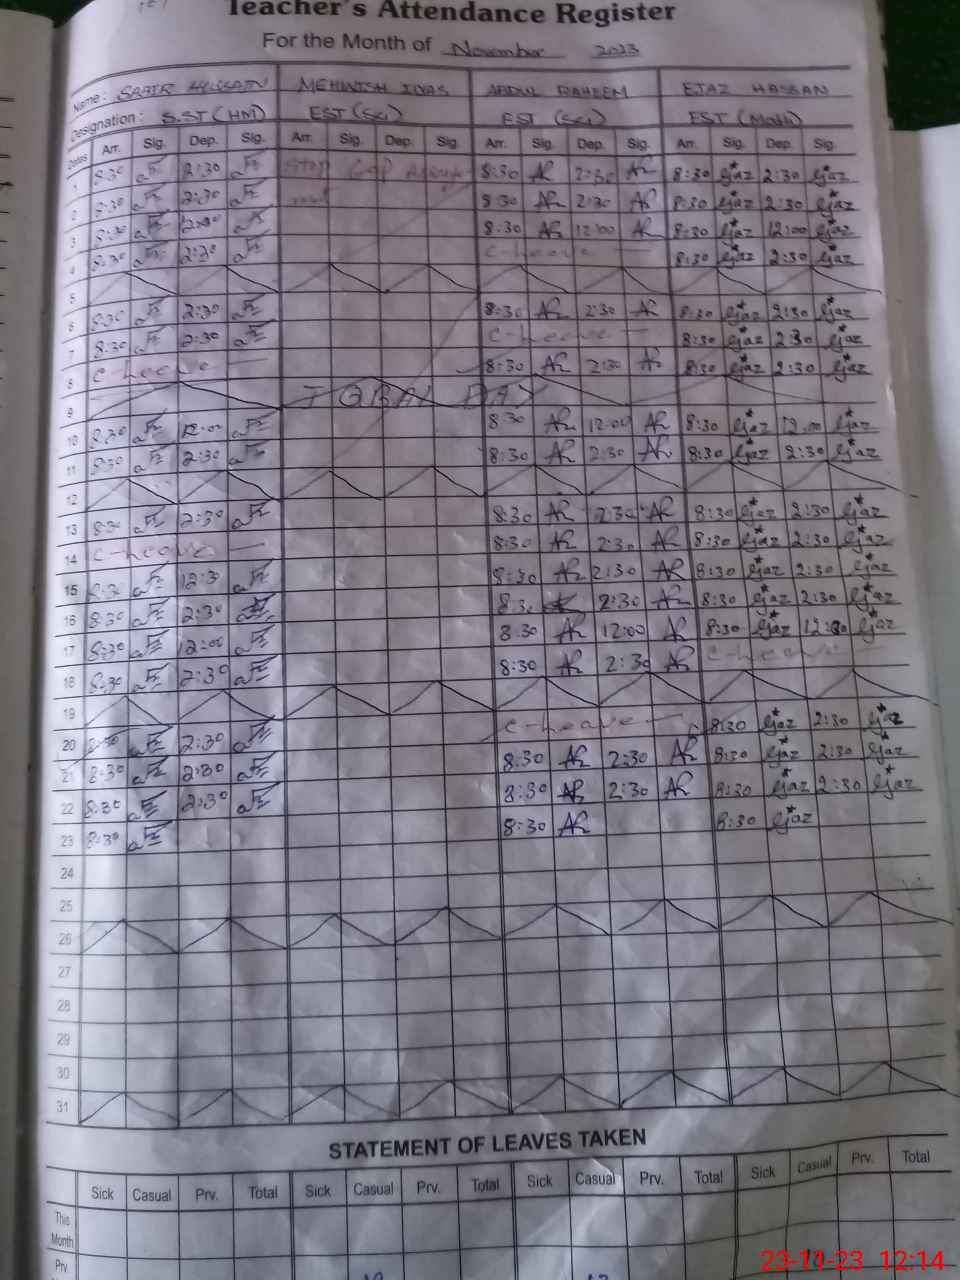 Teacher's Attendance Register
For the Month of November 2023
Name: SABIR HUSSAIN MEHWISH ILYAS ABDUL RAHEEM EJAZ HASSAN
Designation: S.ST (HM) EST (Sci) EST (Sci) EST (Math)
Dates Arr. Sig. Dep. Sig. Arr. Sig. Dep. Sig. Arr. Sig. Dep. Sig. Arr. Sig. Dep. Sig.
1 8:30 2:30 Stop Gap 8:30 AR 2:30 AR 8:30 Ejaz 2:30 Ejaz
2 8:30 2:30 8:30 AR 2:30 AR 8:30 Ejaz 2:30 Ejaz
3 8:30 12:00 8:30 AR 12:00 AR 8:30 Ejaz 12:00 Ejaz
4 8:30 2:30 C-Leave 8:30 Ejaz 2:30 Ejaz
5
6 8:30 2:30 8:30 AR 2:30 AR 8:30 Ejaz 2:30 Ejaz
7 8:30 2:30 C-Leave 8:30 Ejaz 2:30 Ejaz
8 C-Leave 8:30 AR 2:30 AR 8:30 Ejaz 2:30 Ejaz
9 IQBAL DAY
10 8:30 12:00 8:30 AR 12:00 AR 8:30 Ejaz 12:00 Ejaz
11 8:30 2:30 8:30 AR 2:30 AR 8:30 Ejaz 2:30 Ejaz
12
13 8:30 2:30 8:30 AR 2:30 AR 8:30 Ejaz 2:30 Ejaz
14 C-Leave 8:30 AR 2:30 AR 8:30 Ejaz 2:30 Ejaz
15 8:30 12:3 8:30 AR 2:30 AR 8:30 Ejaz 2:30 Ejaz
16 8:30 2:30 8:30 2:30 AR 8:30 Ejaz 2:30 Ejaz
17 8:30 12:00 8:30 AR 12:00 AR 8:30 Ejaz 12:00 Ejaz
18 8:30 2:30 8:30 AR 2:30 AR C-Leave
19
20 8:30 2:30 C-Leave 8:30 Ejaz 2:30 Ejaz
21 8:30 2:30 8:30 AR 2:30 AR 8:30 Ejaz 2:30 Ejaz
22 8:30 2:30 8:30 AR 2:30 AR 8:30 Ejaz 2:30 Ejaz
23 8:30 8:30 AR 8:30 Ejaz
24
25
26
27
28
29
30
31
STATEMENT OF LEAVES TAKEN
Sick Casual Prv. Total Sick Casual Prv. Total Sick Casual Prv. Total Sick Casual Prv. Total
This
Month
Prv
23-11-23 12:14